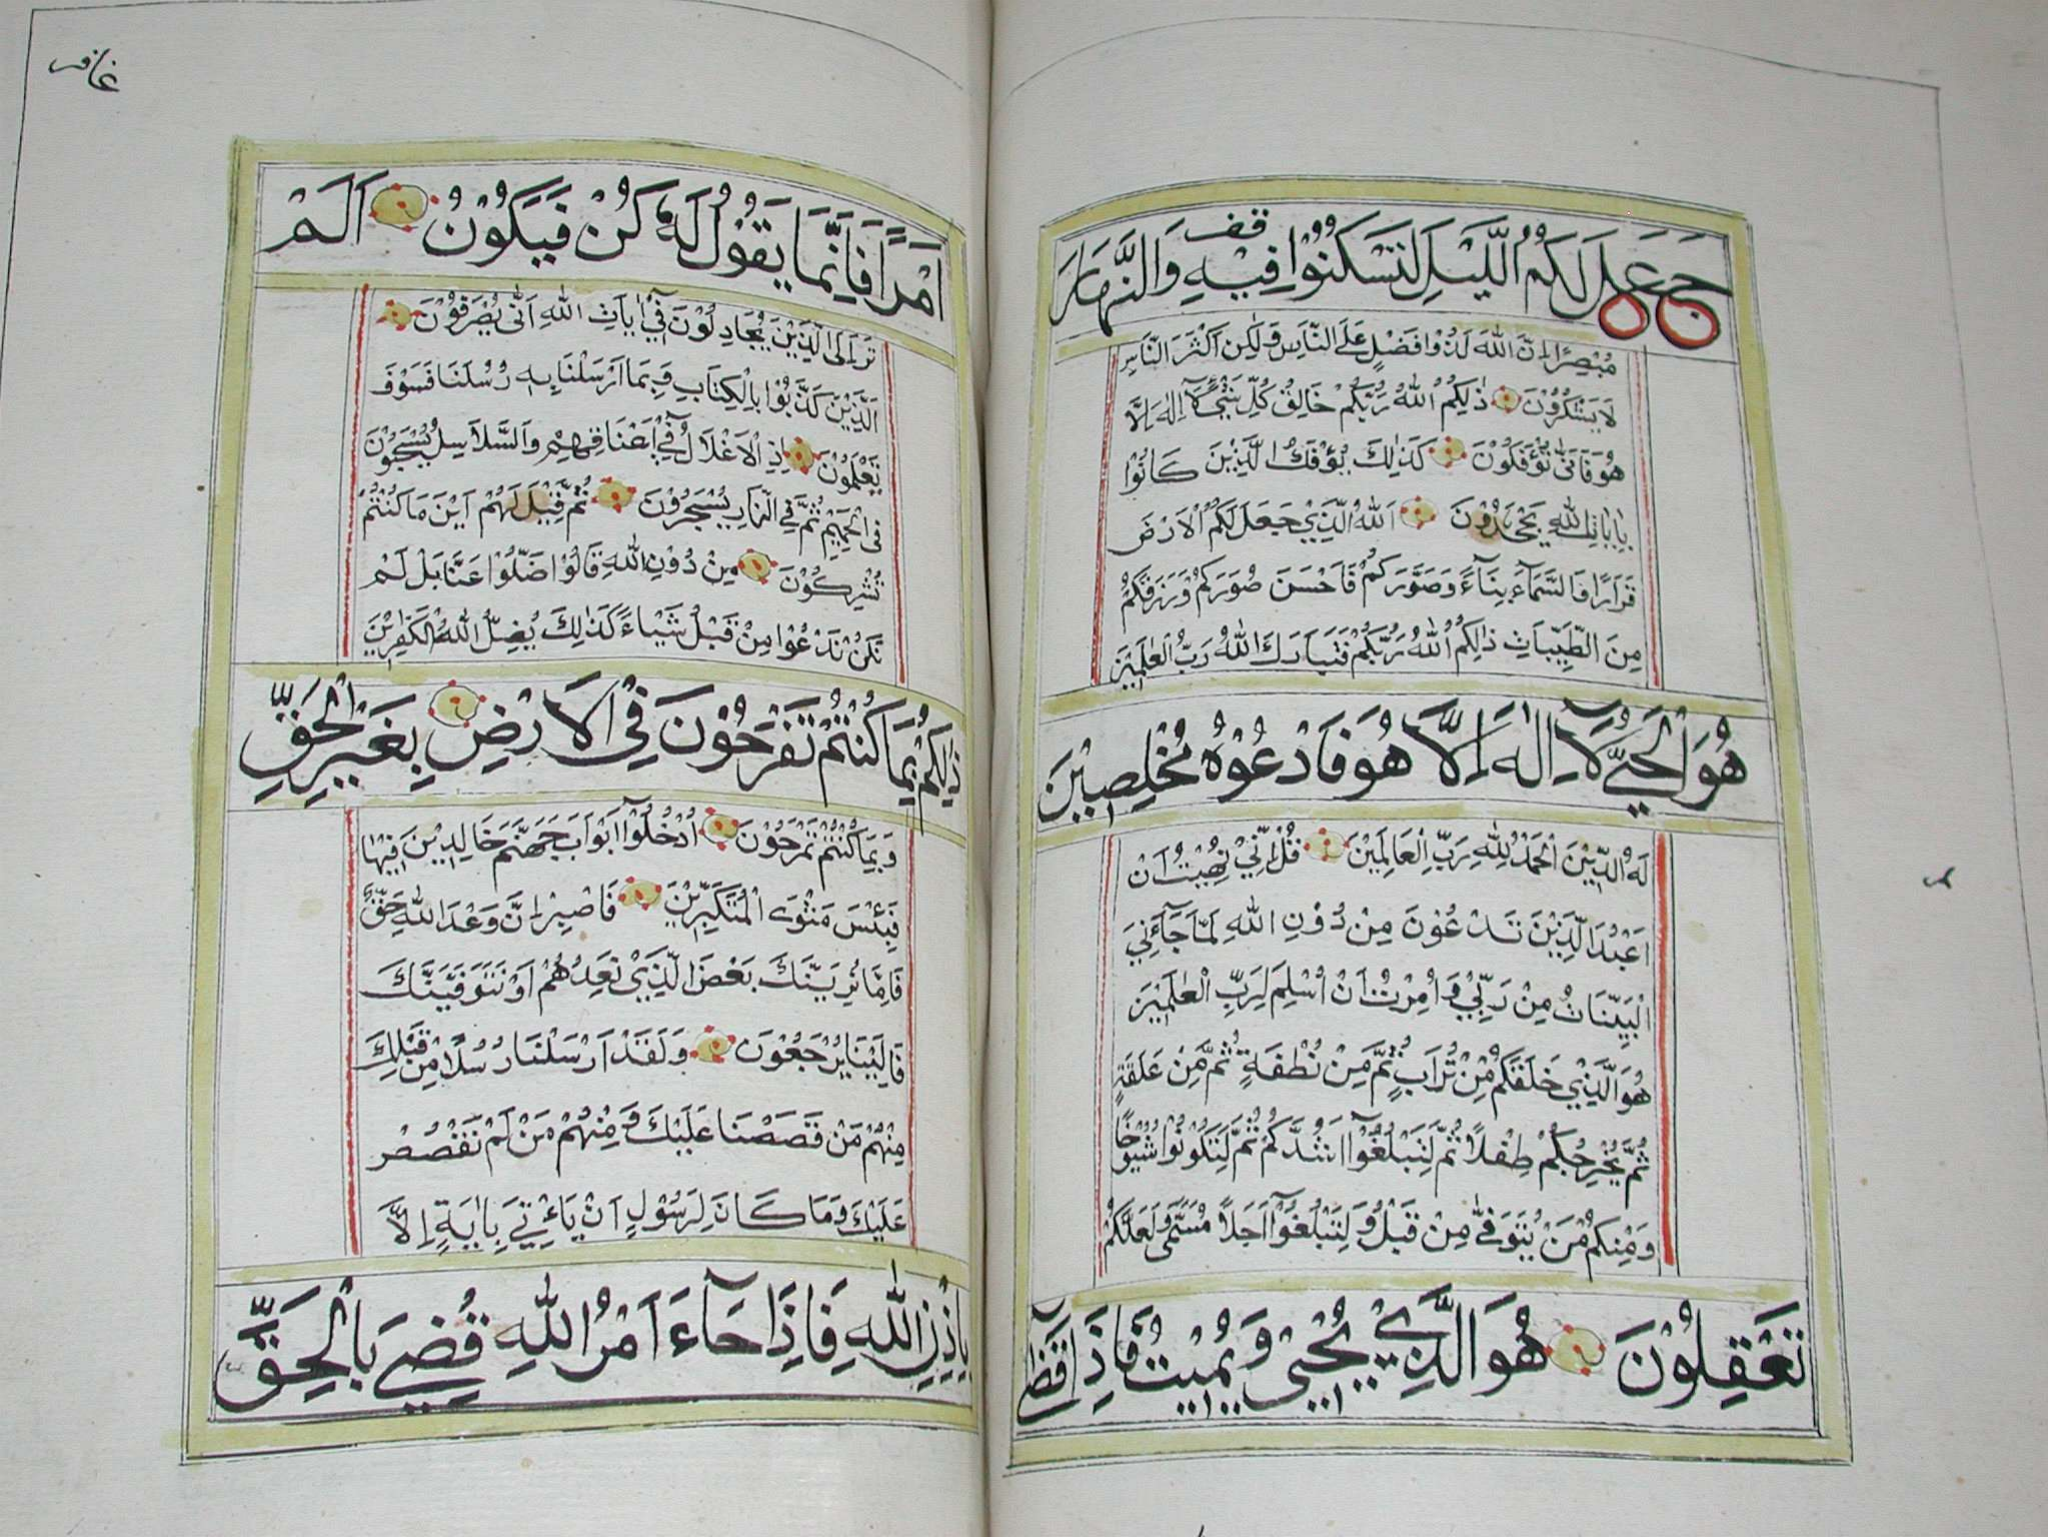 جَعَلَ لَكُمُ اللَّيْلَ لِتَسْكُنُوْا فِيْهِ وَالنَّهَارَ
قف
مُبْصِرًا اِنَّ اللّٰهَ لَذُوْا فَضْلٍ عَلَى النَّاسِ وَلٰكِنَّ اَكْثَرَ النَّاسِ
لَا يَشْكُرُوْنَ ذٰلِكُمُ اللّٰهُ رَبُّكُمْ خَالِقُ كُلِّ شَيْءٍ لَآ اِلٰهَ اِلَّا
هُوَ فَاَنّٰى تُؤْفَكُوْنَ كَذٰلِكَ يُؤْفَكُ الَّذِيْنَ كَانُوْا
بِاٰيَاتِ اللّٰهِ يَجْحَدُوْنَ اَللّٰهُ الَّذِيْ جَعَلَ لَكُمُ الْاَرْضَ
قَرَارًا وَالسَّمَآءَ بِنَآءً وَصَوَّرَكُمْ فَاَحْسَنَ صُوَرَكُمْ وَرَزَقَكُمْ
مِنَ الطَّيِّبَاتِ ذٰلِكُمُ اللّٰهُ رَبُّكُمْ فَتَبَارَكَ اللّٰهُ رَبُّ الْعٰلَمِيْنَ
هُوَ الْحَيُّ لَآ اِلٰهَ اِلَّا هُوَ فَادْعُوْهُ مُخْلِصِيْنَ
لَهُ الدِّيْنَ اَلْحَمْدُ لِلّٰهِ رَبِّ الْعَالَمِيْنَ قُلْ اِنِّيْ نُهِيْتُ اَنْ
اَعْبُدَ الَّذِيْنَ تَدْعُوْنَ مِنْ دُوْنِ اللّٰهِ لَمَّا جَآءَنِيَ
الْبَيِّنَاتُ مِنْ رَبِّيْ وَاُمِرْتُ اَنْ اُسْلِمَ لِرَبِّ الْعٰلَمِيْنَ
هُوَ الَّذِيْ خَلَقَكُمْ مِنْ تُرَابٍ ثُمَّ مِنْ نُطْفَةٍ ثُمَّ مِنْ عَلَقَةٍ
ثُمَّ يُخْرِجُكُمْ طِفْلًا ثُمَّ لِتَبْلُغُوْٓا اَشُدَّكُمْ ثُمَّ لِتَكُوْنُوْا شُيُوْخًا
وَمِنْكُمْ مَنْ يُتَوَفّٰى مِنْ قَبْلُ وَلِتَبْلُغُوْٓا اَجَلًا مُسَمًّى وَلَعَلَّكُمْ
تَعْقِلُوْنَ هُوَ الَّذِيْ يُحْيٖى وَيُمِيْتُ فَاِذَا قَضٰٓى
غافر
اَمْرًا فَاِنَّمَا يَقُوْلُ لَهُ كُنْ فَيَكُوْنُ اَلَمْ
تَرَ اِلَى الَّذِيْنَ يُجَادِلُوْنَ فِيْٓ اٰيَاتِ اللّٰهِ اَنّٰى يُصْرَفُوْنَ
اَلَّذِيْنَ كَذَّبُوْا بِالْكِتَابِ وَبِمَا اَرْسَلْنَا بِهٖ رُسُلَنَا فَسَوْفَ
يَعْلَمُوْنَ اِذِ الْاَغْلَالُ فِيْٓ اَعْنَاقِهِمْ وَالسَّلَاسِلُ يُسْحَبُوْنَ
فِى الْحَمِيْمِ ثُمَّ فِي النَّارِ يُسْجَرُوْنَ ثُمَّ قِيْلَ لَهُمْ اَيْنَ مَا كُنْتُمْ
تُشْرِكُوْنَ مِنْ دُوْنِ اللّٰهِ قَالُوْا ضَلُّوْا عَنَّا بَلْ لَمْ
نَكُنْ نَدْعُوْا مِنْ قَبْلُ شَيْـًٔا كَذٰلِكَ يُضِلُّ اللّٰهُ الْكٰفِرِيْنَ
ذٰلِكُمْ بِمَا كُنْتُمْ تَفْرَحُوْنَ فِي الْاَرْضِ بِغَيْرِ الْحَقِّ
وَبِمَا كُنْتُمْ تَمْرَحُوْنَ اُدْخُلُوْٓا اَبْوَابَ جَهَنَّمَ خَالِدِيْنَ فِيْهَا
فَبِئْسَ مَثْوَى الْمُتَكَبِّرِيْنَ فَاصْبِرْ اِنَّ وَعْدَ اللّٰهِ حَقٌّ
فَاِمَّا نُرِيَنَّكَ بَعْضَ الَّذِيْ نَعِدُهُمْ اَوْ نَتَوَفَّيَنَّكَ
فَاِلَيْنَا يُرْجَعُوْنَ وَلَقَدْ اَرْسَلْنَا رُسُلًا مِنْ قَبْلِكَ
مِنْهُمْ مَنْ قَصَصْنَا عَلَيْكَ وَمِنْهُمْ مَنْ لَمْ نَقْصُصْ
عَلَيْكَ وَمَا كَانَ لِرَسُوْلٍ اَنْ يَاْتِيَ بِاٰيَةٍ اِلَّا
بِاِذْنِ اللّٰهِ فَاِذَا جَآءَ اَمْرُ اللّٰهِ قُضِيَ بِالْحَقِّ